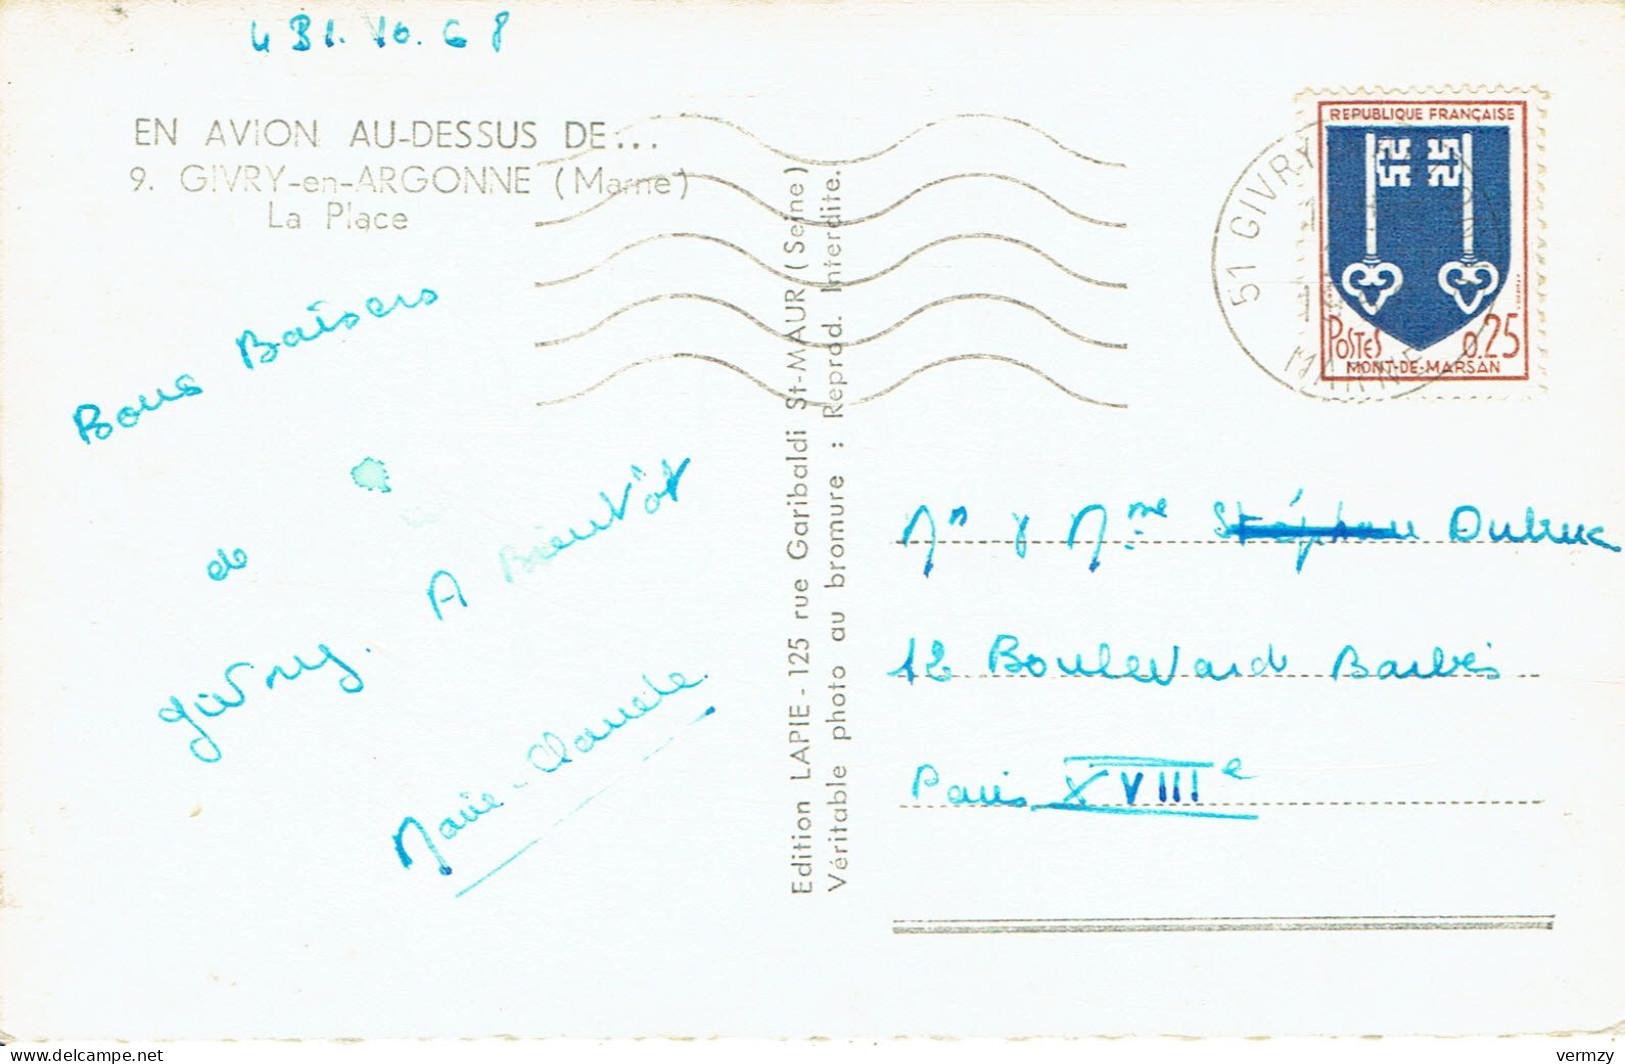 31.10.68
EN AVION AU-DESSUS DE...
9. GIVRY-en-ARGONNE (Marne)
La Place
Bons Baisers
de
Givry. A Bientôt
Marie-Claude
Edition LAPIE - 125 rue Garibaldi St-MAUR (Seine)
Véritable photo au bromure : Reprod. Interdite.
51 GIVRY
MARNE
REPUBLIQUE FRANÇAISE
POSTES 0.25
MONT-DE-MARSAN
Mr & Mme Stéphane
12 Boulevard Barbès
Paris XVIIIe
delcampe.net
vermzy